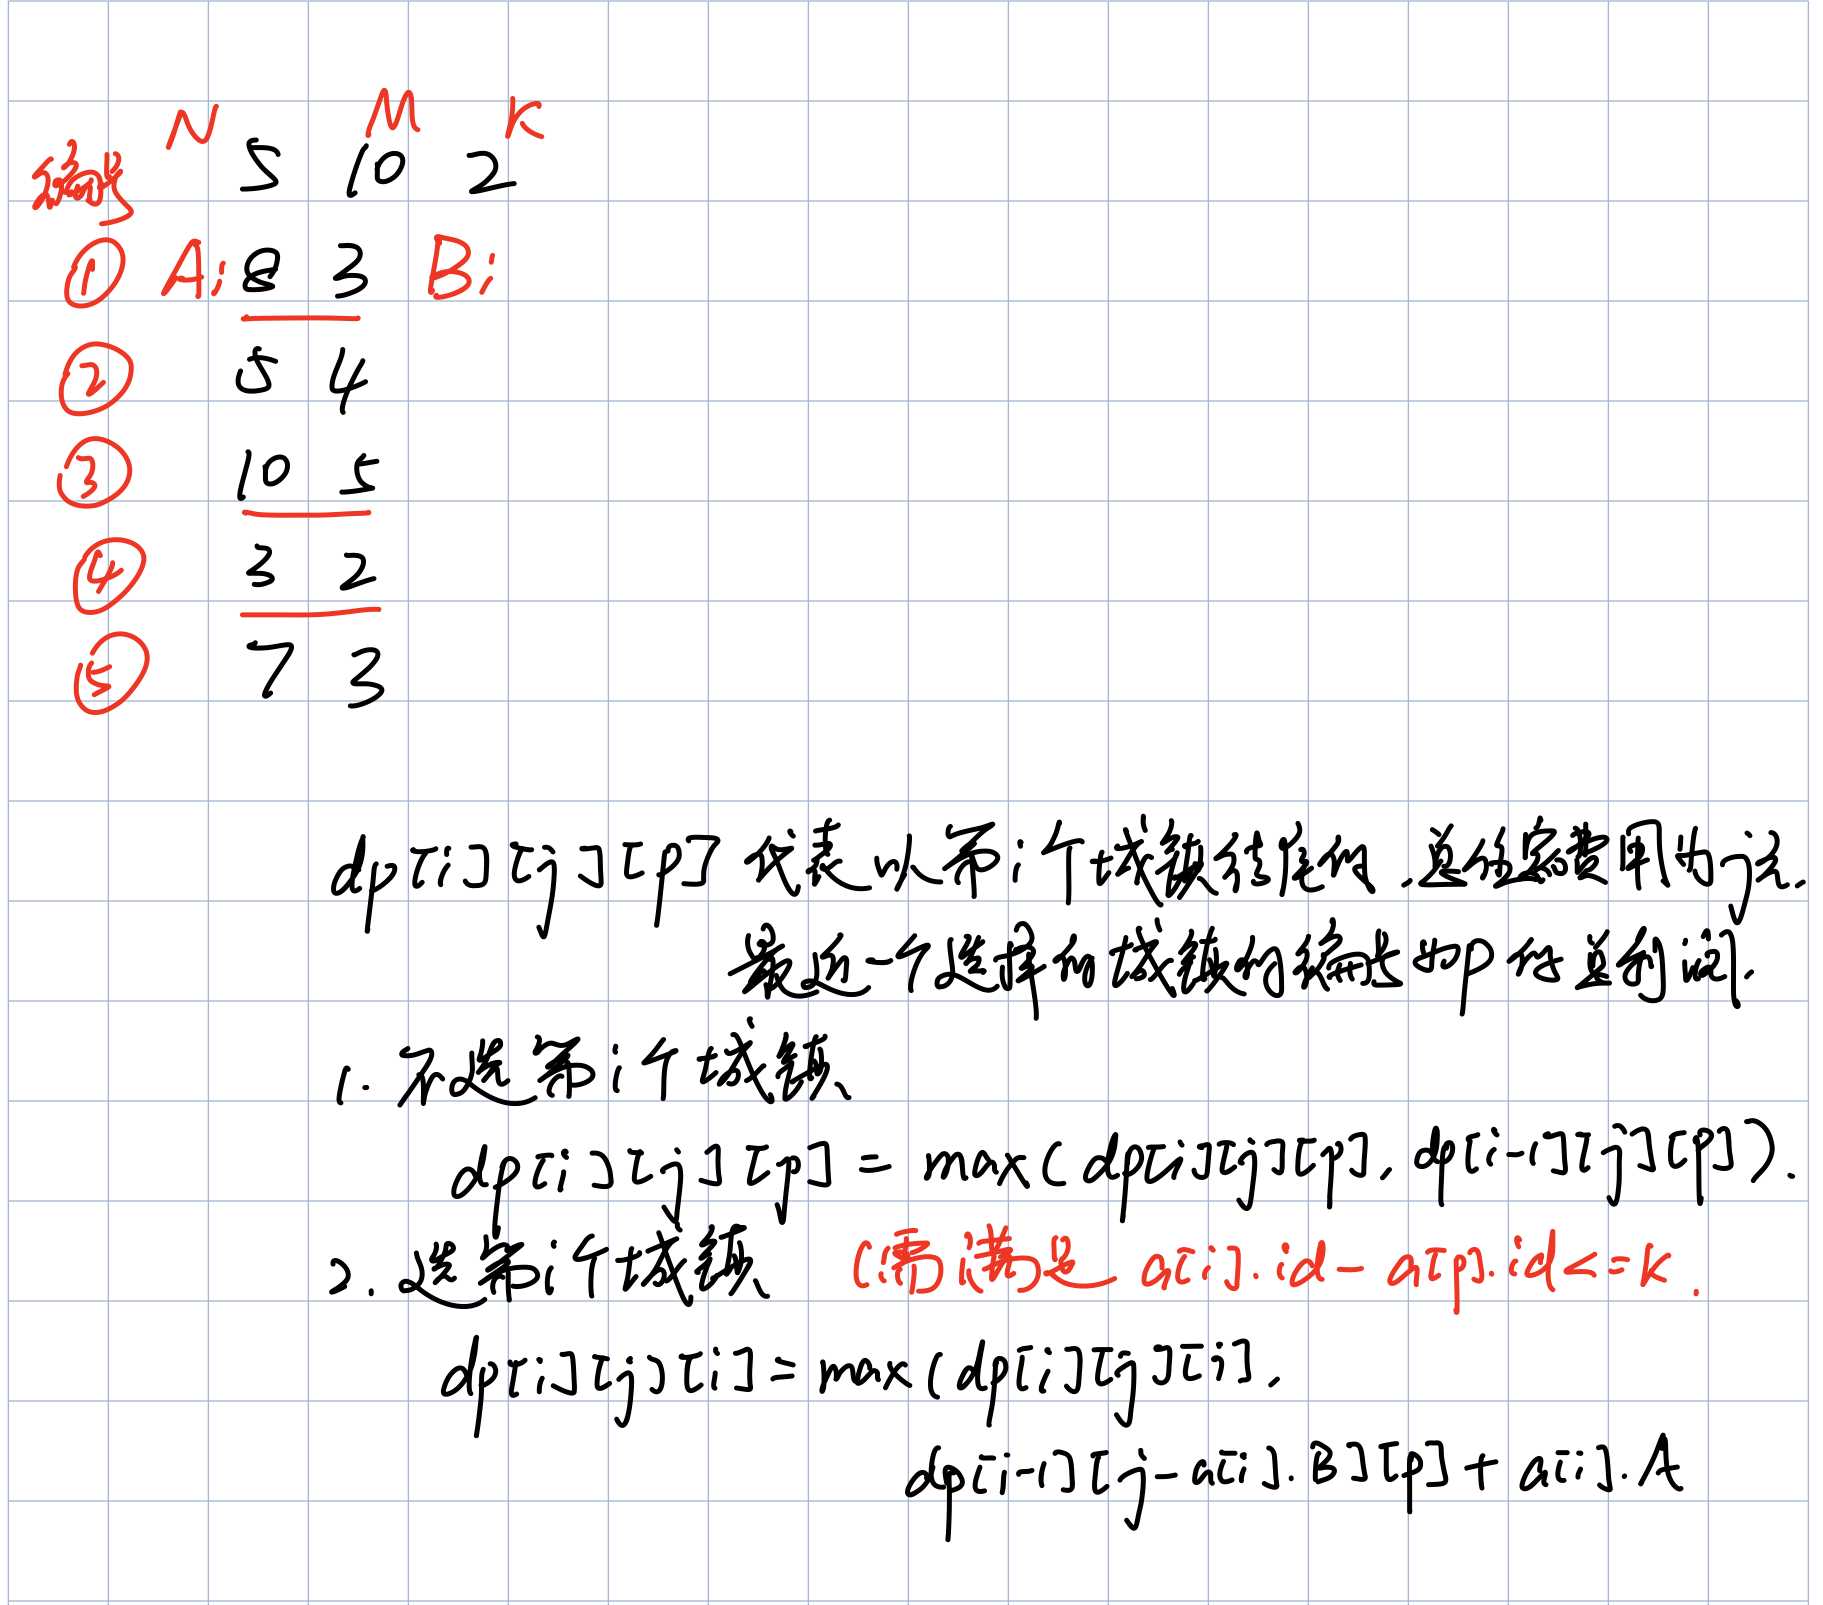 N M K
编号 5 10 2
① Ai 8 3 Bi
② 5 4
③ 10 5
④ 3 2
⑤ 7 3
dp[i][j][p] 代表以第i个城镇结尾的,总住宿费用为j元,
最近一个选择的城镇的编号为p的总利润.
1. 不选第i个城镇
dp[i][j][p] = max(dp[i][j][p], dp[i-1][j][p]).
2. 选第i个城镇 (需满足 a[i].id - a[p].id <= K.
dp[i][j][i] = max(dp[i][j][i],
dp[i-1][j-a[i].B][p] + a[i].A